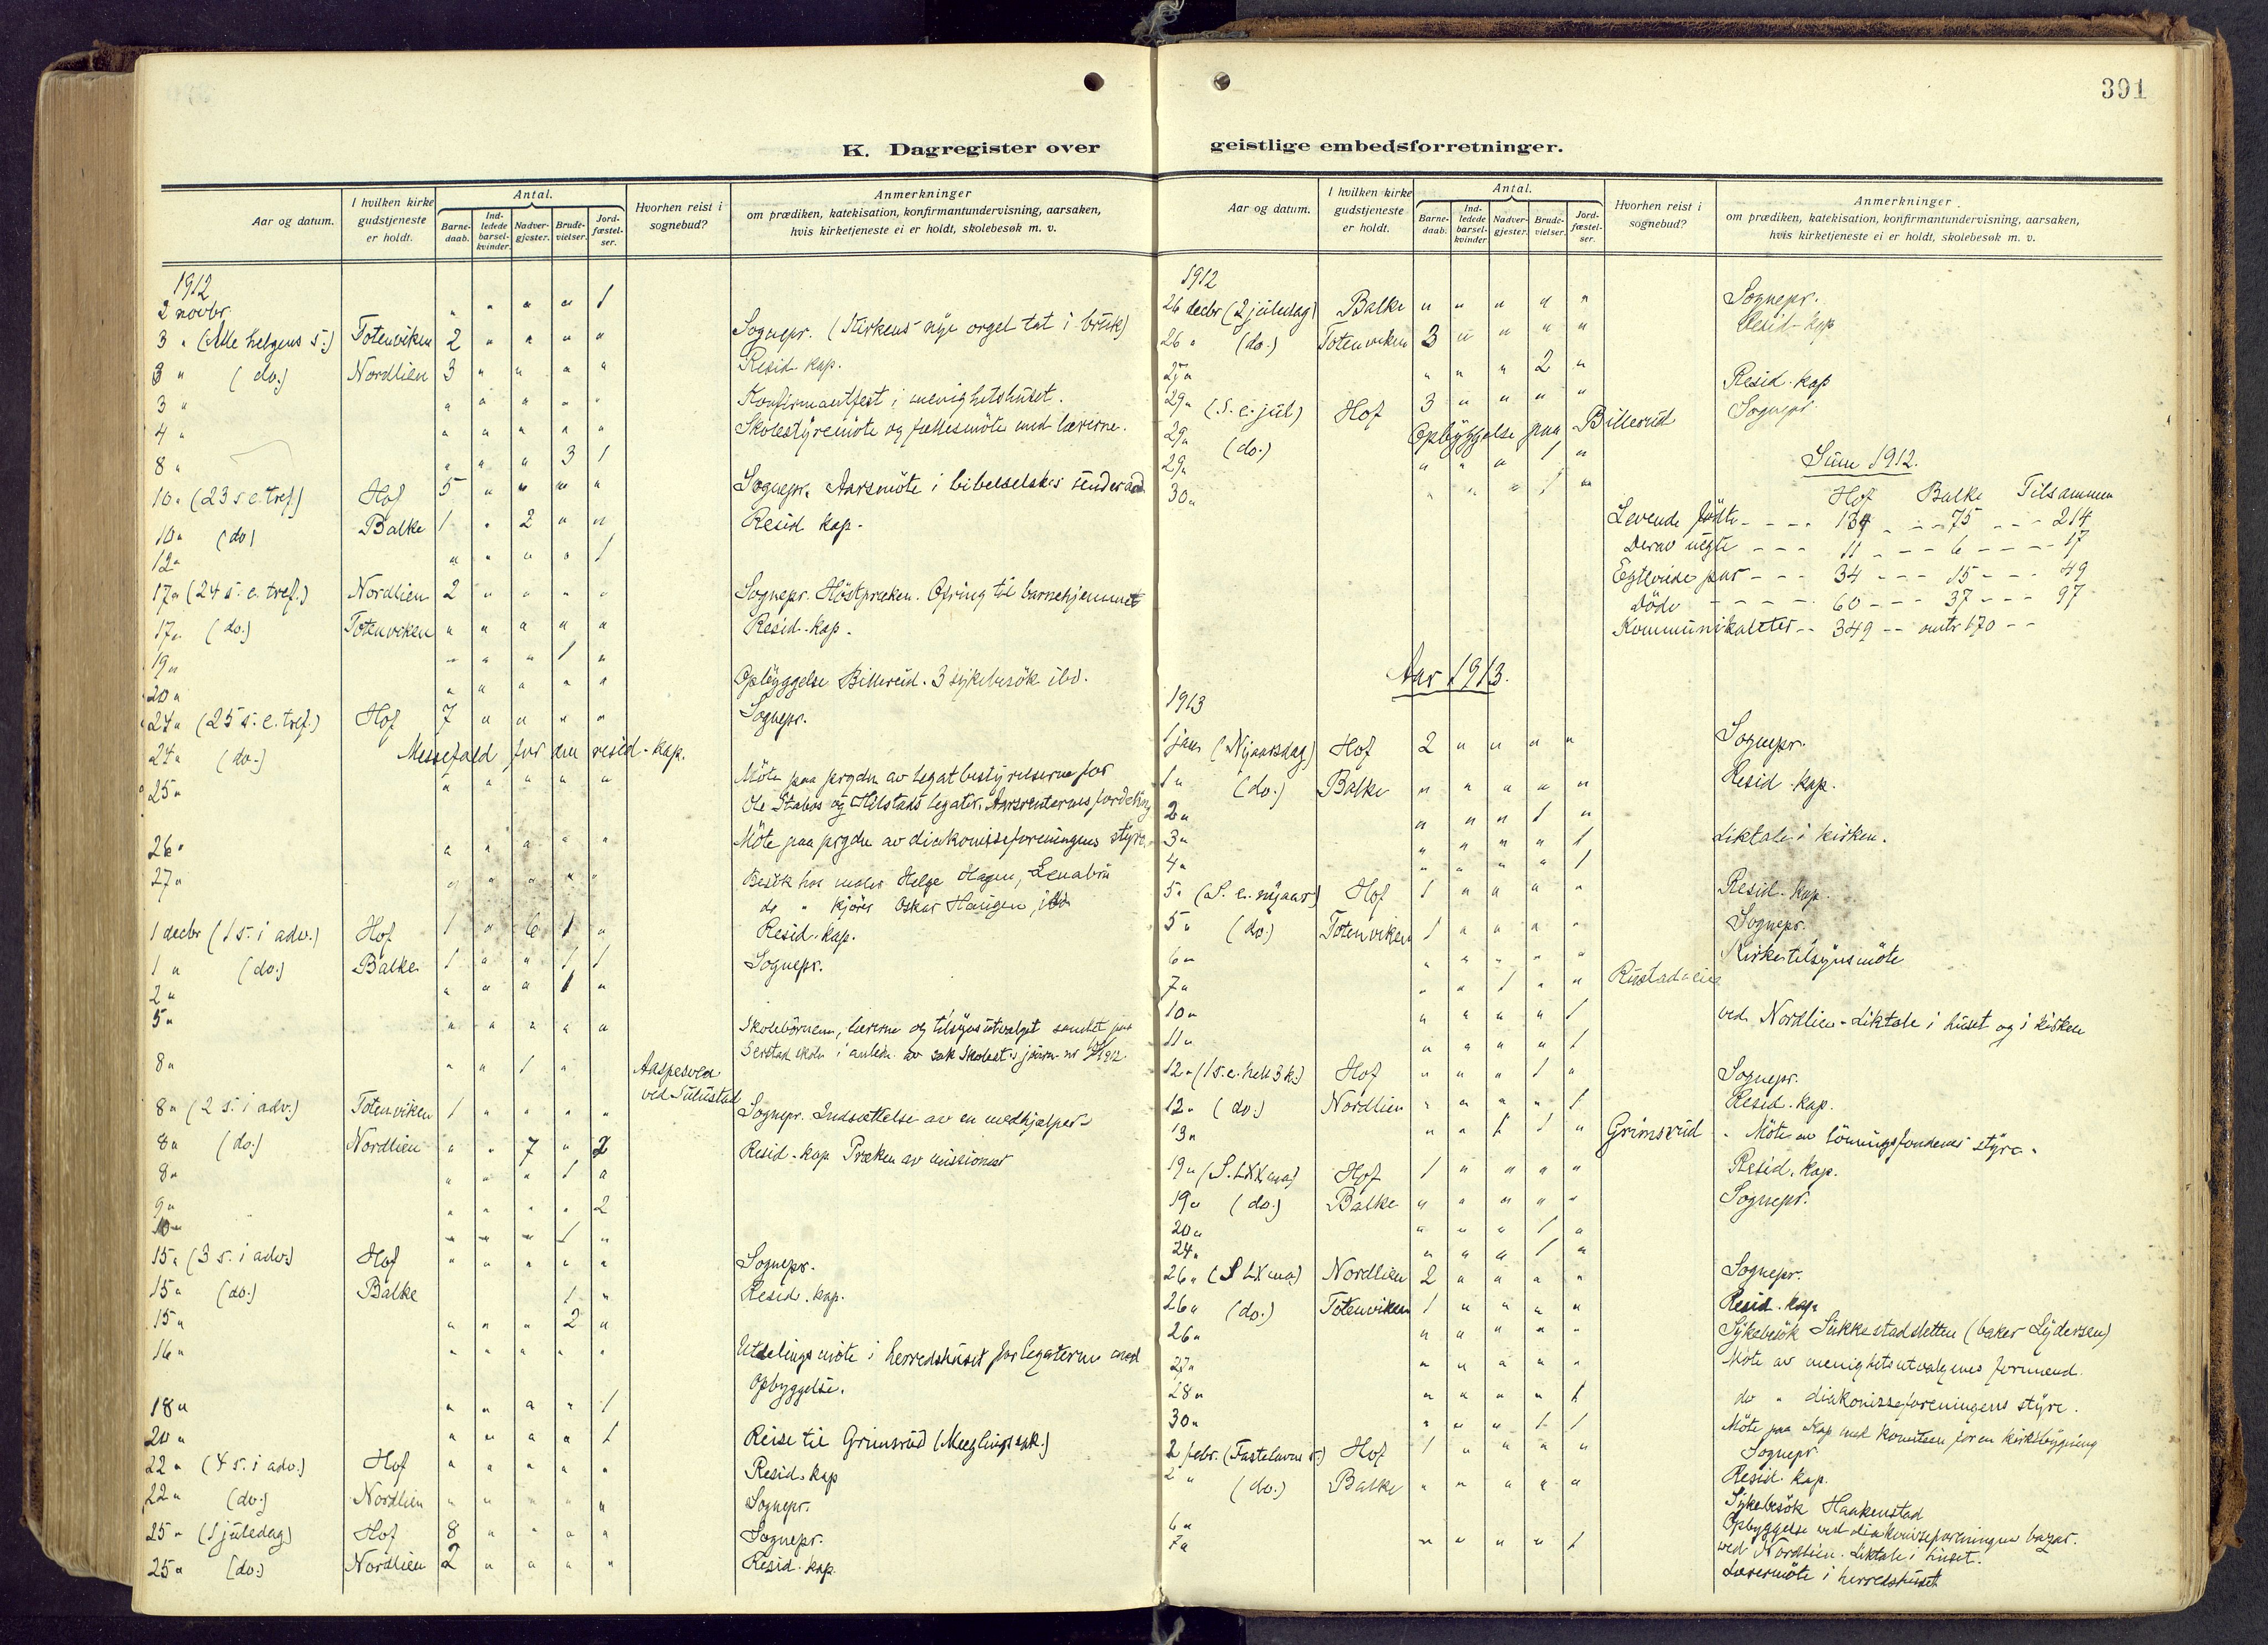 391
K. Dagregister over
geistlige embedsforretninger.
Aar og datum. I hvilken kirke gudstjeneste er holdt. Antal. Barne-daab. Ind-ledede barsel-kvinder. Nadver-gjester. Brude-vielser. Jord-fæstel-ser. Hvorhen reist i sognebud? Anmerkninger om prædiken, katekisation, konfirmantundervisning, aarsaken, hvis kirketjeneste ei er holdt, skolebesøk m. v.
1912
2 novbr. " " " " 1
3 " (Alle helgens s.) Totenviken 2 " " " " Sognepr. (Kirkens nye orgel tat i bruk)
3 " (do.) Nordlien 3 " " " " Resid. kap.
3 " " " " " " Konfirmantfest i menighetshuset.
4 " " " " " " Skolestyremöte og fællesmöte med lærerne.
8 " " " " 3 1
10 " (23 s. e. tref.) Hof 5 " " " " Sognepr. Aarsmöte i bibelselskap
10 " (do) Balke 1 " 2 " " Resid kap.
12 " " " " " 1
17 " (24 s. e. tref.) Nordlien 2 " " " " Sognepr. Höstpræken. Ofring til barnehjemmet
17 " (do.) Totenviken " " " " " Resid. kap.
19 " " " " 1 "
20 " " " " " " Opbyggelse Billerud. 3 sykebesök ibd.
24 " (25 s. e. tref.) Hof 7 " " " " Sognepr.
24 " (do.) Messefald for den resid. kap.
25 " " " " " " Möte paa prgdn av legatbestyrelserne for
Ole Stabos og Hilstads legater. Aarsrenternes fordeling
26 " " " " " " Möte paa prgdn av diakonisseforeningens styre.
27 " " " " " " Besök hos maler Helge Hagen, Lenabru
do " kjörer Oskar Haugen, ibd.
1 decbr (1 s. i adv.) Hof 1 " 6 1 " Resid. kap.
1 " (do.) Balke 1 " " 1 1 Sognepr.
2 " " " " 1 "
5 " " " " " " Skolebörnene, lærerne og tilsynsutvalget samlet paa
skolen i anledn. av sak
8 " " " 1 " ved Sulustad
8 " (2 s. i adv.) Totenviken 1 " " " " Sognepr. Indsættelse av en medhjælper
8 " (do.) Nordlien " " 7 " 2 Resid. kap. Præken av missionær
8 " " " " 1 "
9 " " " " " 2
10 " " " " 1 "
15 " (3 s. i adv.) Hof " " " " " Sognepr.
15 " (do.) Balke 1 " Resid. kap.
15 " " " " 2 "
16 " " " " " " Utdelingsmöte i herredshuset for legaterne med
Opbyggelse.
18 " " " " " 1
20 " " " " " 1 Reise til Grimsrud (Meglingssak.)
22 " (4 s. i adv.) Hof " " " " " Resid. kap
22 " (do.) Nordlien " " " " " Sognepr.
25 " (1 juledag) Hof 8 " " " " Sognepr.
25 " (do.) Nordlien 2 " " " " Resid. kap.
Aar og datum. I hvilken kirke gudstjeneste er holdt. Antal. Barne-daab. Ind-ledede barsel-kvinder Nadver-gjester. Brude-vielser. Jord-fæstel-ser. Hvorhen reist i sognebud? Anmerkninger om prædiken, katekisation, konfirmantundervisning, aarsaken, hvis kirketjeneste ei er holdt, skolebesøk m. v.
1912
26 decbr (2 juledag) Balke " " " " " Sognepr.
26 " (do.) Totenviken 3 " " " " Resid. kap
27 " " " " 2 "
29 " (S. e. jul) Hof 3 " " " " Resid. kap
29 " (do.) Opbyggelse paa Billerud Sognepr.
29 " " " " 1 "
30 " " " " 1 "
Sum 1912.
Hof Balke Tilsammen
Levende födte 139 75 214
Derav uegte 11 6 17
Egteviede par 34 15 49
Döde 60 37 97
Kommunikanter 349 omtr 170
Aar 1913.
1913
1 jan. (Nyaarsdag) Hof 2 " " " " Sognepr.
1 " (do.) Balke " " " " " Resid. kap.
2 " " " " 1 "
3 " " " " " 1 Liktale i kirken.
4 " " " " " 1
5 " (S. e. nyaar) Hof 1 " " " " Resid. kap.
5 " (do.) Totenviken 1 " " " " Sognepr.
6 " " " " " " Kirketilsynsmöte
7 " " " 1 " " Rustadeie
10 " " " " " 1 ved Nordlien. Liktale i huset og i kirken
11 " " " " " 1
12 " (1 s. e. hell 3 k.) Hof " " " 1 " Sognepr.
12 " (do.) Nordlien " " " " 1 Resid. kap.
13 " " " 1 1 " Grimsrud Möte av lönningsfondenes styre.
19 " (S. LXX ma) Hof 1 " " " " Resid. kap.
19 " (do.) Balke " " " " " Sognepr.
20 " " " " 1 "
24 " " " " 1 "
26 " (S LX ma) Nordlien 2 " " " " Sognepr.
26 " (do.) Totenviken 1 " " " " Resid. kap.
26 " " " " " " Sykebesök Sukkestadsletten (baker Lydersen)
27 " " " " " " Möte av menighetsutvalgenes formænd.
28 " " " " " 1 do " diakonisseforeningens styre.
30 " " " " 1 1 Möte paa Kap med komiteen for en kirkebygning
2 febr. (Fastelavns s.) Hof 1 " " " " Sognepr
2 " (do.) Balke " " " " " Resid. kap.
Sykebesök Haakenstad
6 " Opbyggelse ved diakonisseforeningens bazar.
7 " " " " " 1 ved Nordlien. Liktale i huset.
Lærermöte i herredshuset